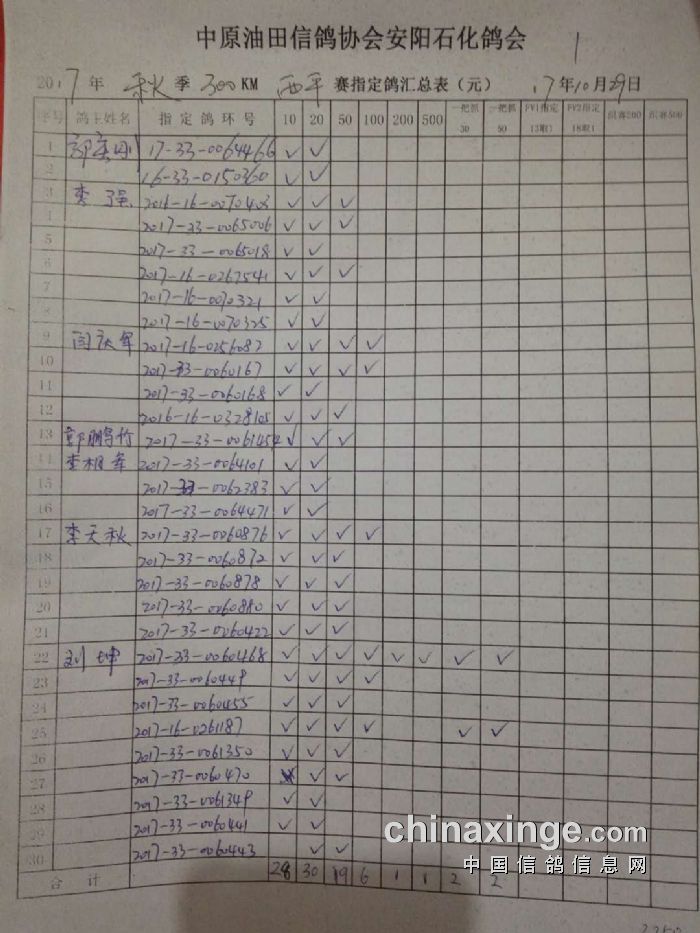 中原油田信鸽协会安阳石化鸽会
1
2017年 秋季 300KM 西平 赛指定鸽汇总表（元） 17年10月29日
序号 鸽主姓名 指定鸽环号 10 20 50 100 200 500 一把抓30 一把抓50 FV1指定(3取1) FV2指定18取1
1 17-33-0064466 ✓ ✓
2 16-33-0150360 ✓ ✓
3 李强 2016-16-0070403 ✓ ✓ ✓
4 2017-33-0065006 ✓ ✓ ✓
5 2017-33-0065018 ✓ ✓
6 2017-16-0267541 ✓ ✓ ✓
7 2017-16-0070321 ✓ ✓
8 2017-16-0070325 ✓ ✓
9 闫庆军 2017-16-0256082 ✓ ✓ ✓ ✓
10 2017-33-0060167 ✓ ✓ ✓ ✓
11 2017-33-0060168 ✓ ✓
12 2016-16-0328105 ✓ ✓ ✓
13 郭鹏 2017-33-0061454 ✓ ✓ ✓
14 李相军 2017-33-0064101 ✓ ✓
15 2017-33-0062383 ✓ ✓
16 2017-33-0064471 ✓ ✓
17 李天秋 2017-33-0060876 ✓ ✓ ✓ ✓
18 2017-33-0060872 ✓ ✓ ✓
19 2017-33-0060878 ✓ ✓ ✓
20 2017-33-0060880 ✓ ✓ ✓
21 2017-33-0060422 ✓ ✓ ✓
22 刘坤 2017-33-0060468 ✓ ✓ ✓ ✓ ✓ ✓ ✓ ✓
23 2017-33-0060449 ✓ ✓ ✓ ✓
24 2017-33-0060455 ✓ ✓ ✓
25 2017-16-0261187 ✓ ✓ ✓ ✓ ✓ ✓
26 2017-33-0061350 ✓ ✓ ✓
27 2017-33-0060470 ✓ ✓
28 2017-33-0061349 ✓ ✓
29 2017-33-0060441 ✓ ✓
30 2017-33-0060443 ✓ ✓
合计 28 30 19 6 1 1 2 2
chinaxinge.com
中国信鸽信息网